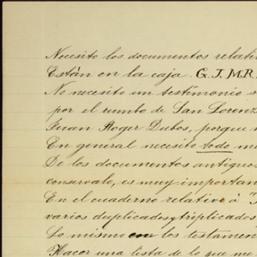 Necesito los documentos relati
Están en la caja G.J.M.R.
No necesito un testimonio
por el rumbo de San Lorenz
Juan Roger Dubos, porque
En general necesito todo
De los documentos antiguos
conservalo, es muy importan
En el cuaderno relativo á
varios duplicados y triplicados
Lo mismo con los testamen
Hacer una lista de lo que me